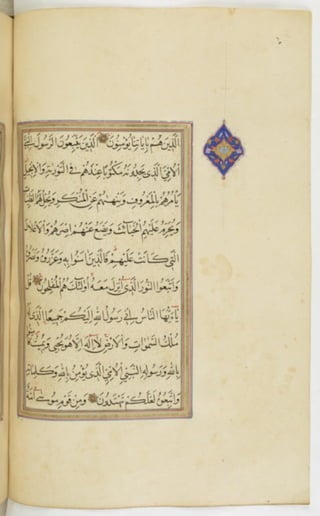 الَّذِينَ هُمْ بِآيَاتِنَا يُؤْمِنُونَ الَّذِينَ يَتَّبِعُونَ الرَّسُولَ النَّبِيَّ
الْأُمِّيَّ الَّذِي يَجِدُونَهُ مَكْتُوبًا عِنْدَهُمْ فِي التَّوْرٰيةِ وَالْإِنْجِيلِ
يَأْمُرُهُمْ بِالْمَعْرُوفِ وَيَنْهٰيهُمْ عَنِ الْمُنْكَرِ وَيُحِلُّ لَهُمُ الطَّيِّبَاتِ
وَيُحَرِّمُ عَلَيْهِمُ الْخَبَائِثَ وَيَضَعُ عَنْهُمْ إِصْرَهُمْ وَالْأَغْلَالَ
الَّتِي كَانَتْ عَلَيْهِمْ فَالَّذِينَ آمَنُوا بِهِ وَعَزَّرُوهُ وَنَصَرُوهُ
وَاتَّبَعُوا النُّورَ الَّذِي أُنْزِلَ مَعَهُ أُولٰئِكَ هُمُ الْمُفْلِحُونَ قُلْ
يَا أَيُّهَا النَّاسُ إِنِّي رَسُولُ اللهِ إِلَيْكُمْ جَمِيعًا الَّذِي لَهُ
مُلْكُ السَّمٰوَاتِ وَالْأَرْضِ لَا إِلٰهَ إِلَّا هُوَ يُحْيِي وَيُمِيتُ فَآمِنُوا
بِاللهِ وَرَسُولِهِ النَّبِيِّ الْأُمِّيِّ الَّذِي يُؤْمِنُ بِاللهِ وَكَلِمَاتِهِ
وَاتَّبِعُوهُ لَعَلَّكُمْ تَهْتَدُونَ وَمِنْ قَوْمِ مُوسٰى أُمَّةٌ